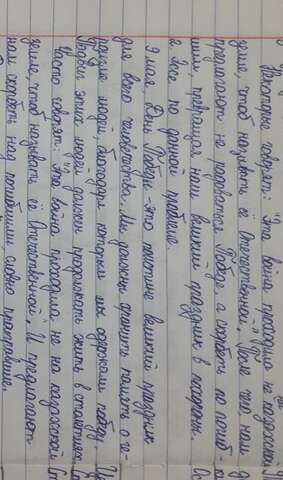 Некоторые говорят: "Эта война проходила не на казахской
земле, чтоб называть её Отечественной." После чего, нам
предлагают не радоваться Победе, а скорбеть по погиб-
шим, превращая наш великий праздник в похороны.
2. Эссе по данной проблеме.
9 мая, День Победы - это поистине великий праздник
для всего человечества. Мы должны хранить память о ге-
роизме людей, благодаря которым мы одержали победу.
Подвиг этих людей должен продолжать жить в столетиях.
Часто говорят: "Эта война проходила не на казахской
земле, чтоб называть её Отечественной". И предлагают
нам скорбеть над погибшими, словно